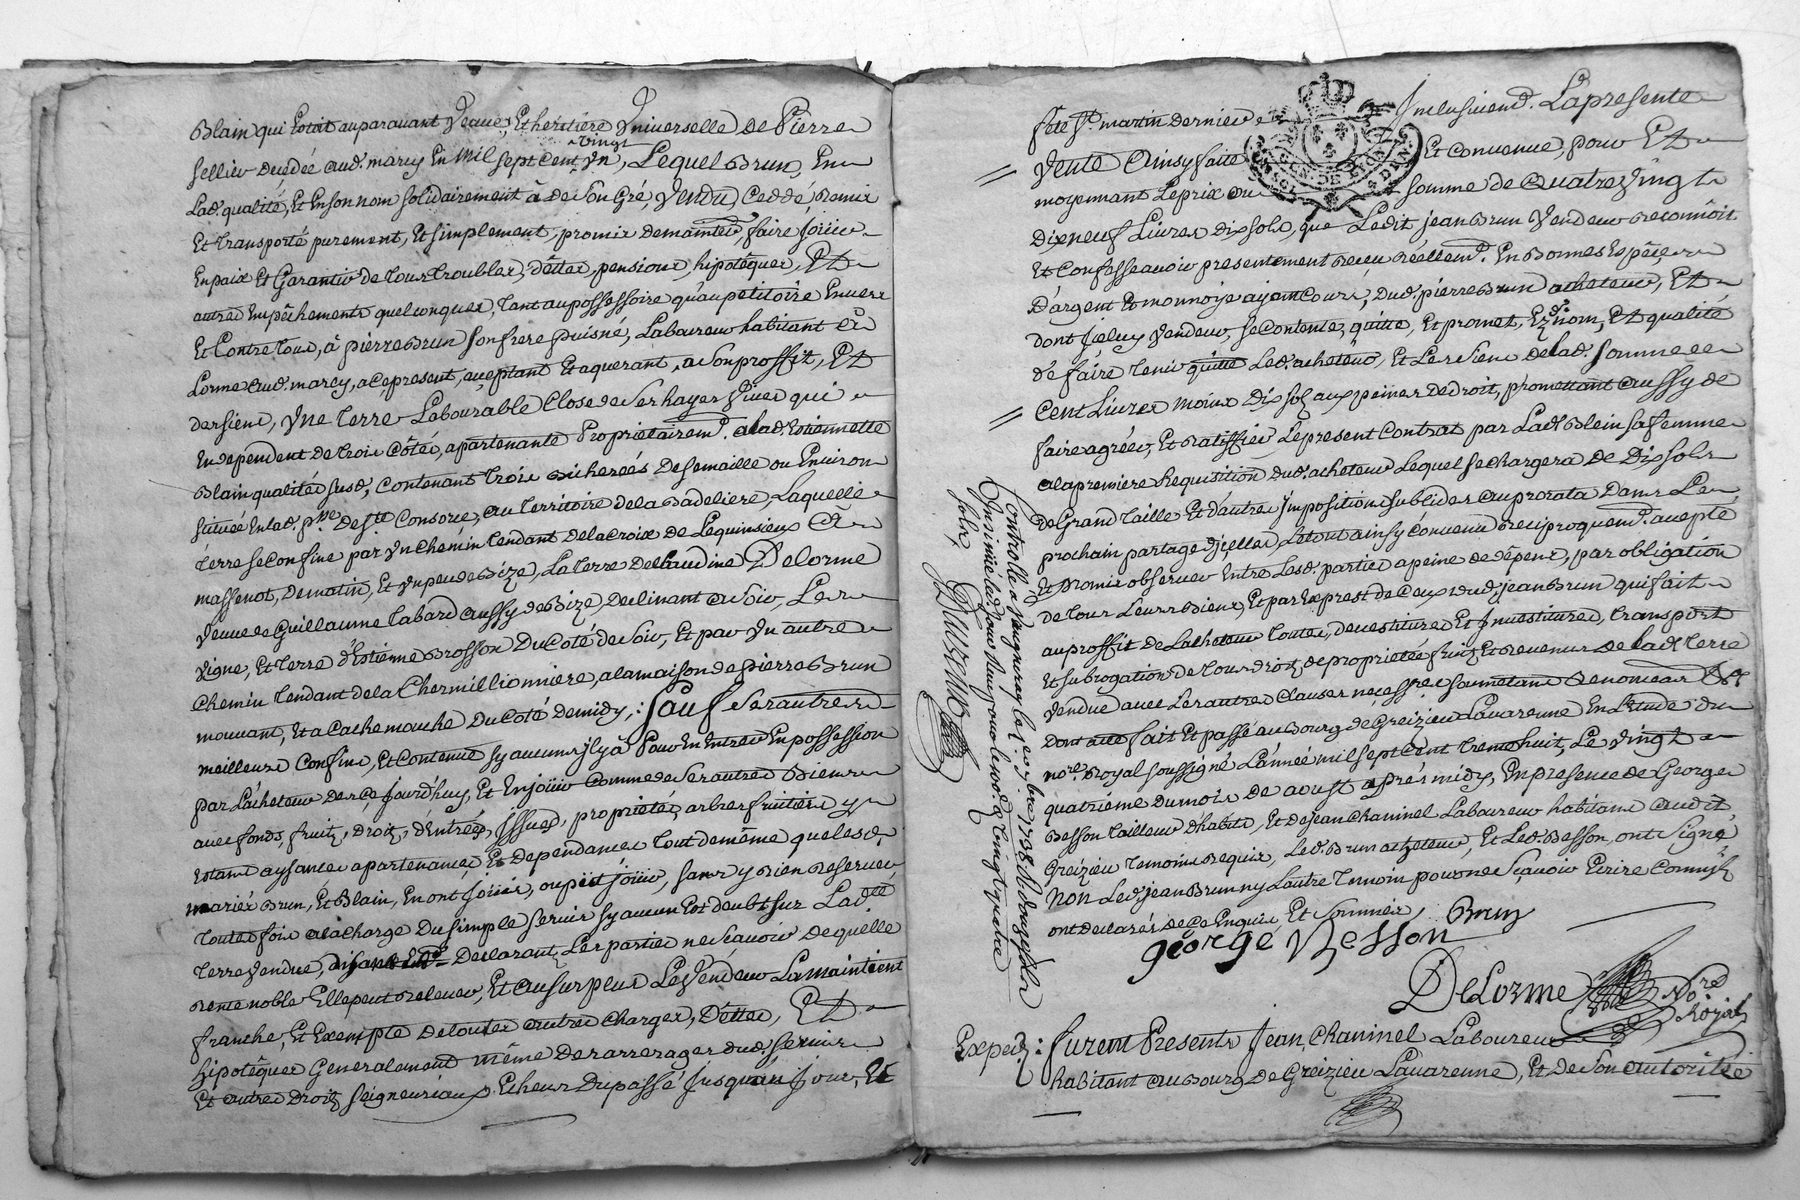 Blain qui Etoit auparavant Veuve, Et heritiere Vniverselle De Pierre
sellier decedée aud. marcy En mil sept Cent vingt Vn, Lequel Brun, En
Lad. qualité, Et En son nom solidairement â De son Gré, Vendu Ceddé, Remis
Et Transporté purement, Et simplement, promis De maintenir, faire Joüir
En paix Et Garantir de Tous Troubles, dêttes, pensions, hipotêques, Et
autres Empêchements quelconques, tant au possessoire qu'au petitoire Envers
Et Contre Tous, â pierre Brun son frere puisné, Laboureur habitant â
Lorme aud. marcy, a ce present, aceptant Et aquerant, a son proffit, Et
des siens, Vne terre Labourable Close de ses hayes vives qui
En dependent de trois Côtés, apartenante Proprietairemt. a lad. Etiennette
Blain qualité susd, Contenant trois Bicherées De semaille ou Environ
scituée En lad. psse De ste Consorce, au territoire de la Badeliere, Laquelle
terre se Confine par Vn Chemin tendant de la Croix de Lequinsieux â
massenot, De matin, Et Vn peu de Bize, La terre De Claudine Delorme
Veuve de Guillaume Tabard aussy de Bize, Declinant au soir, Les
Vigne, Et terre d'Estienne Brosson Du Coté de soir, Et par Vn autre
Chemin tendant de la Chermillionniere, a la maison de pierre Brun
mouvant, Et a Cachemouche Du Coté de midy, : sauf Ses autres
meilleurs Confins, Et Contenue sy aucuns il y â Pour En Entrer En possession
par L'acheteur Des ce Jourd'huy, Et En joüir Comme de ses autres Biens
avec fonds, fruits, Droits, d'Entrées, Jssues, proprietés, arbres fruitiers y
Estans aysances apartenances Et Dependances Tout de même que lesd.
mariés Brun, Et Blain, En ont joüis, ou pût joüir, sans y Rien Reserver
toutes fois a la charge Du simple servis sy aucun Est deubt sur Ladte
terre Vendue, Declarant, Les parties ne scavoir De quelle
Rente noble Elle peut Relever, Et au surplus Le Vendeur La maintient
franche, Et Exempte De toutes autres Charges, Dêttes, Et
hipotêques Generalement même Des arrerages dud. servis
Et autres Droits seigneuriaux Echeus Du passé Jusqu'â un Jour, Et
fête st. martin Dernier Jnclusivemt. La presente
Vente Ainsy faite Et Convenue, pour Et
moyennant Le prix ou somme de quatre Vingt
Dix neuf Livres dix sols, que Ledit jean Brun Vendeur Reconnôit
Et Confesse avoir presentement Receu Réellemt. En Bonnes Espêces
D'argent Et monnoye ayant Cours, Dud. pierre Brun acheteur, Et
dont jceluy Vendeur, se Contente, quitte, Et promet, Ezd. nom, Et qualité
de faire tenir quitte Led. acheteur, Et Les siens de lad. somme de
Cent Livres moins Dix sols aux peines De droit, promettant aussy de
faire agréer, Et Ratiffier Le present Contrat par Lad. Blain sa femme
a la premiere Requisition dud. acheteur Lequel se chargera de Dix sols
de Grand taille Et d'autres Jmpositions subsides au prorata Dans Le
prochain partage d'jcelles, Le tout ainsy Convenu Reciproquemt. acepté
Et Promis observer Entre Lesd. parties a peine de dépens, par obligation
de tous Leurs Biens, Et par Exprest de Ceux dud. jean Brun qui fait
au proffit De L'acheteur toutes, devestitures Et Jnvestitures, transport
Et subrogation de tous droits, de proprietés fruits Et Revenus De lade. terre
Vendue avec Les autres Clauses necessres. soumettant Renonceant
Dont acte fait Et passé au Bourg de Greizieu Lavarenne En L'Etude du
nore. Royal soussigné L'année mil sept Cent trente huit, Le vingt
quatrième du mois De aoust aprés midy, En presence de George
Besson tailleur d'habits, Et de jean Chavinel Laboureur habitans audit
Greizieu temoins Requis, Led. Brun acheteur, Et Led. Besson, ont signé
Non Led. jean Brun ny L'autre temoin pour ne sçavoir Ecrire Comm'ils
ont declarés de ce Enquis Et sommés, Brun
george Besson
Delorme Nore Royal
Exped. : furent Presents Jean Chavinel Laboureur
habitant au Bourg De Greizieu Lavarenne, Et de son autorité
Controllé a Vaugneray le 1er 7bre 1738 R douze sols
Insinué led. jour
sols,